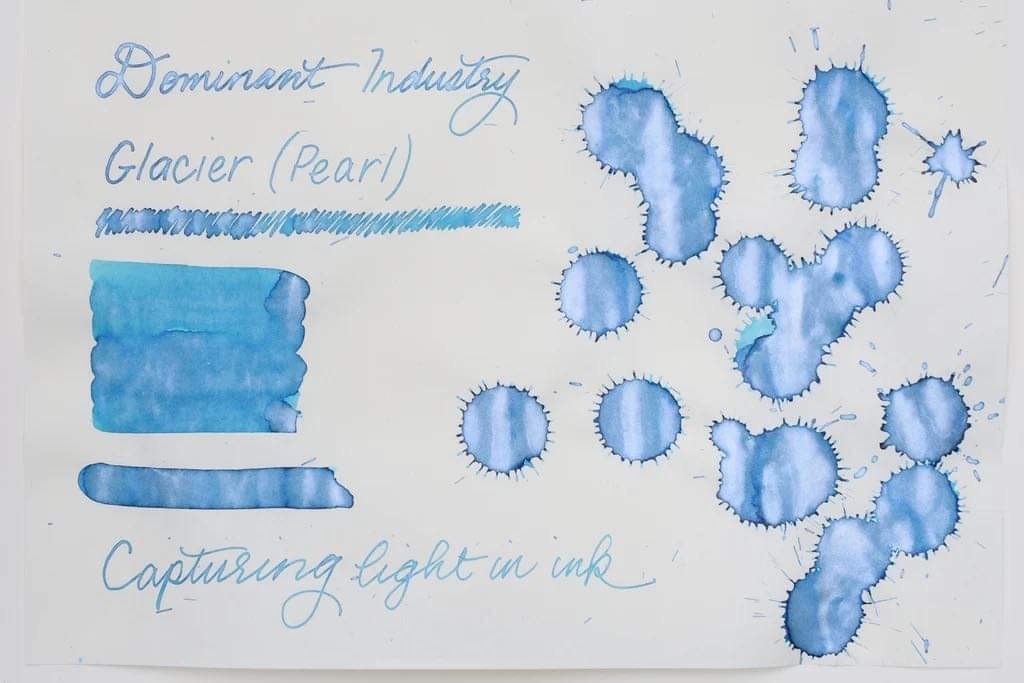 Dominant Industry
Glacier (Pearl)
Capturing light in ink